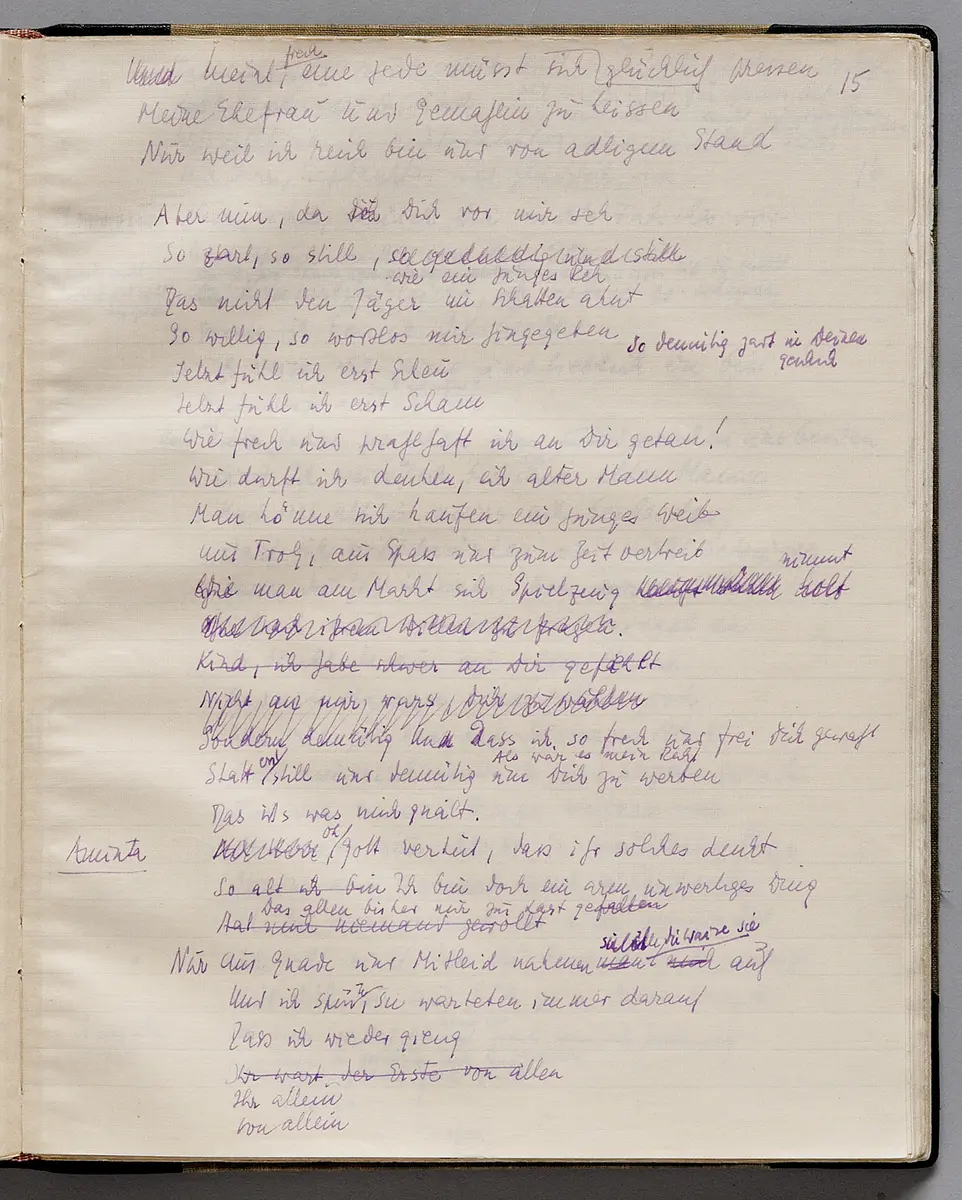 Und meint, frech eine jede müsst sich glücklich preisen
15
Meine Ehefrau und Gemahlin zu heissen
Nur weil ich reich bin und von adligem Stand
Aber nun, da ich Dich vor mir seh
So zart, so still, so geduldig und still
wie ein junges Reh
Das nicht den Jäger im Schatten ahnt
So willig, so wortlos mir hingegeben
so demütig zart in Deinen
Jetzt fühl ich erst Scheu
Jetzt fühl ich erst Scham
Wie frech und prahlhaft ich an Dir getan!
Wie darft ich denken, ich alter Mann
Man könne sich kaufen ein junges Weib
aus Trotz, aus Spass und zum Zeitvertreib
nimmt
Wie man am Markt sich Spielzeug holt
Kind, ich habe schwer an Dir gefehlt
Nicht an mir, wars, Dich zu wählen
Sondern demütig Und Dass ich so frech und frei Dich gerafft
Als wär es mein Recht
Statt erst still und demütig um Dich zu werben
Das ists was mich quält.
Aminta
oh, Gott verhüt, dass ihr solches denkt
So alt ich bin Ich bin doch ein arm unwertiges Ding
Das allen bisher nur zur Last gefallen
Hat mich niemand gewollt
Nur aus Gnade und Mitleid nahmen man mich auf
die Waise sie
Und ich spürt, sie warteten immer darauf
Dass ich wieder gieng
Ihr wart der Erste von allen
Ihr allein
von allein